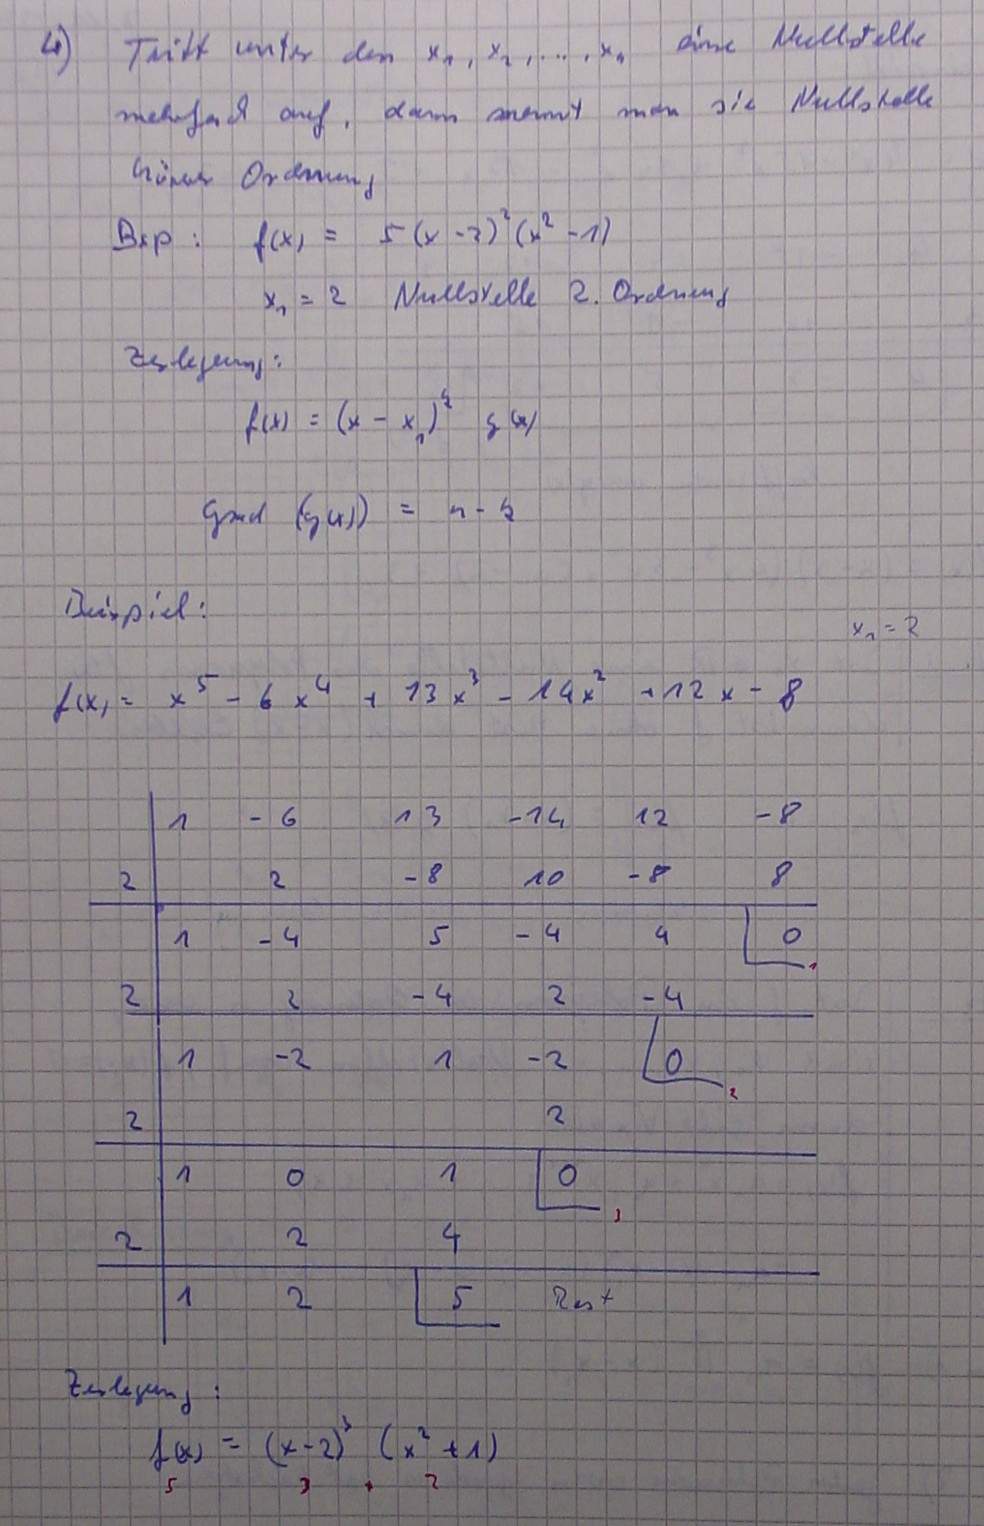 4) Tritt unter den x₁, x₂, ..., xₙ eine Nullstelle
mehrfach auf, dann nennt man sie Nullstelle
höherer Ordnung
Bsp: f(x) = 5(x-2)²(x²-1)
x₁ = 2 Nullstelle 2. Ordnung
Zerlegung:
f(x) = (x - x₁)ᵏ g(x)
Grad (g(x)) = n - k
Beispiel:
x₁ = 2
f(x) = x⁵ - 6x⁴ + 13x³ - 14x² + 12x - 8
1 -6 13 -14 12 -8
2 2 -8 10 -8 8
1 -4 5 -4 4 0 1
2 2 -4 2 -4
1 -2 1 -2 0 2
2 2
1 0 1 0 3
2 2 4
1 2 5 Rest
Zerlegung:
f(x) = (x-2)³ (x²+1)
5 3 + 2